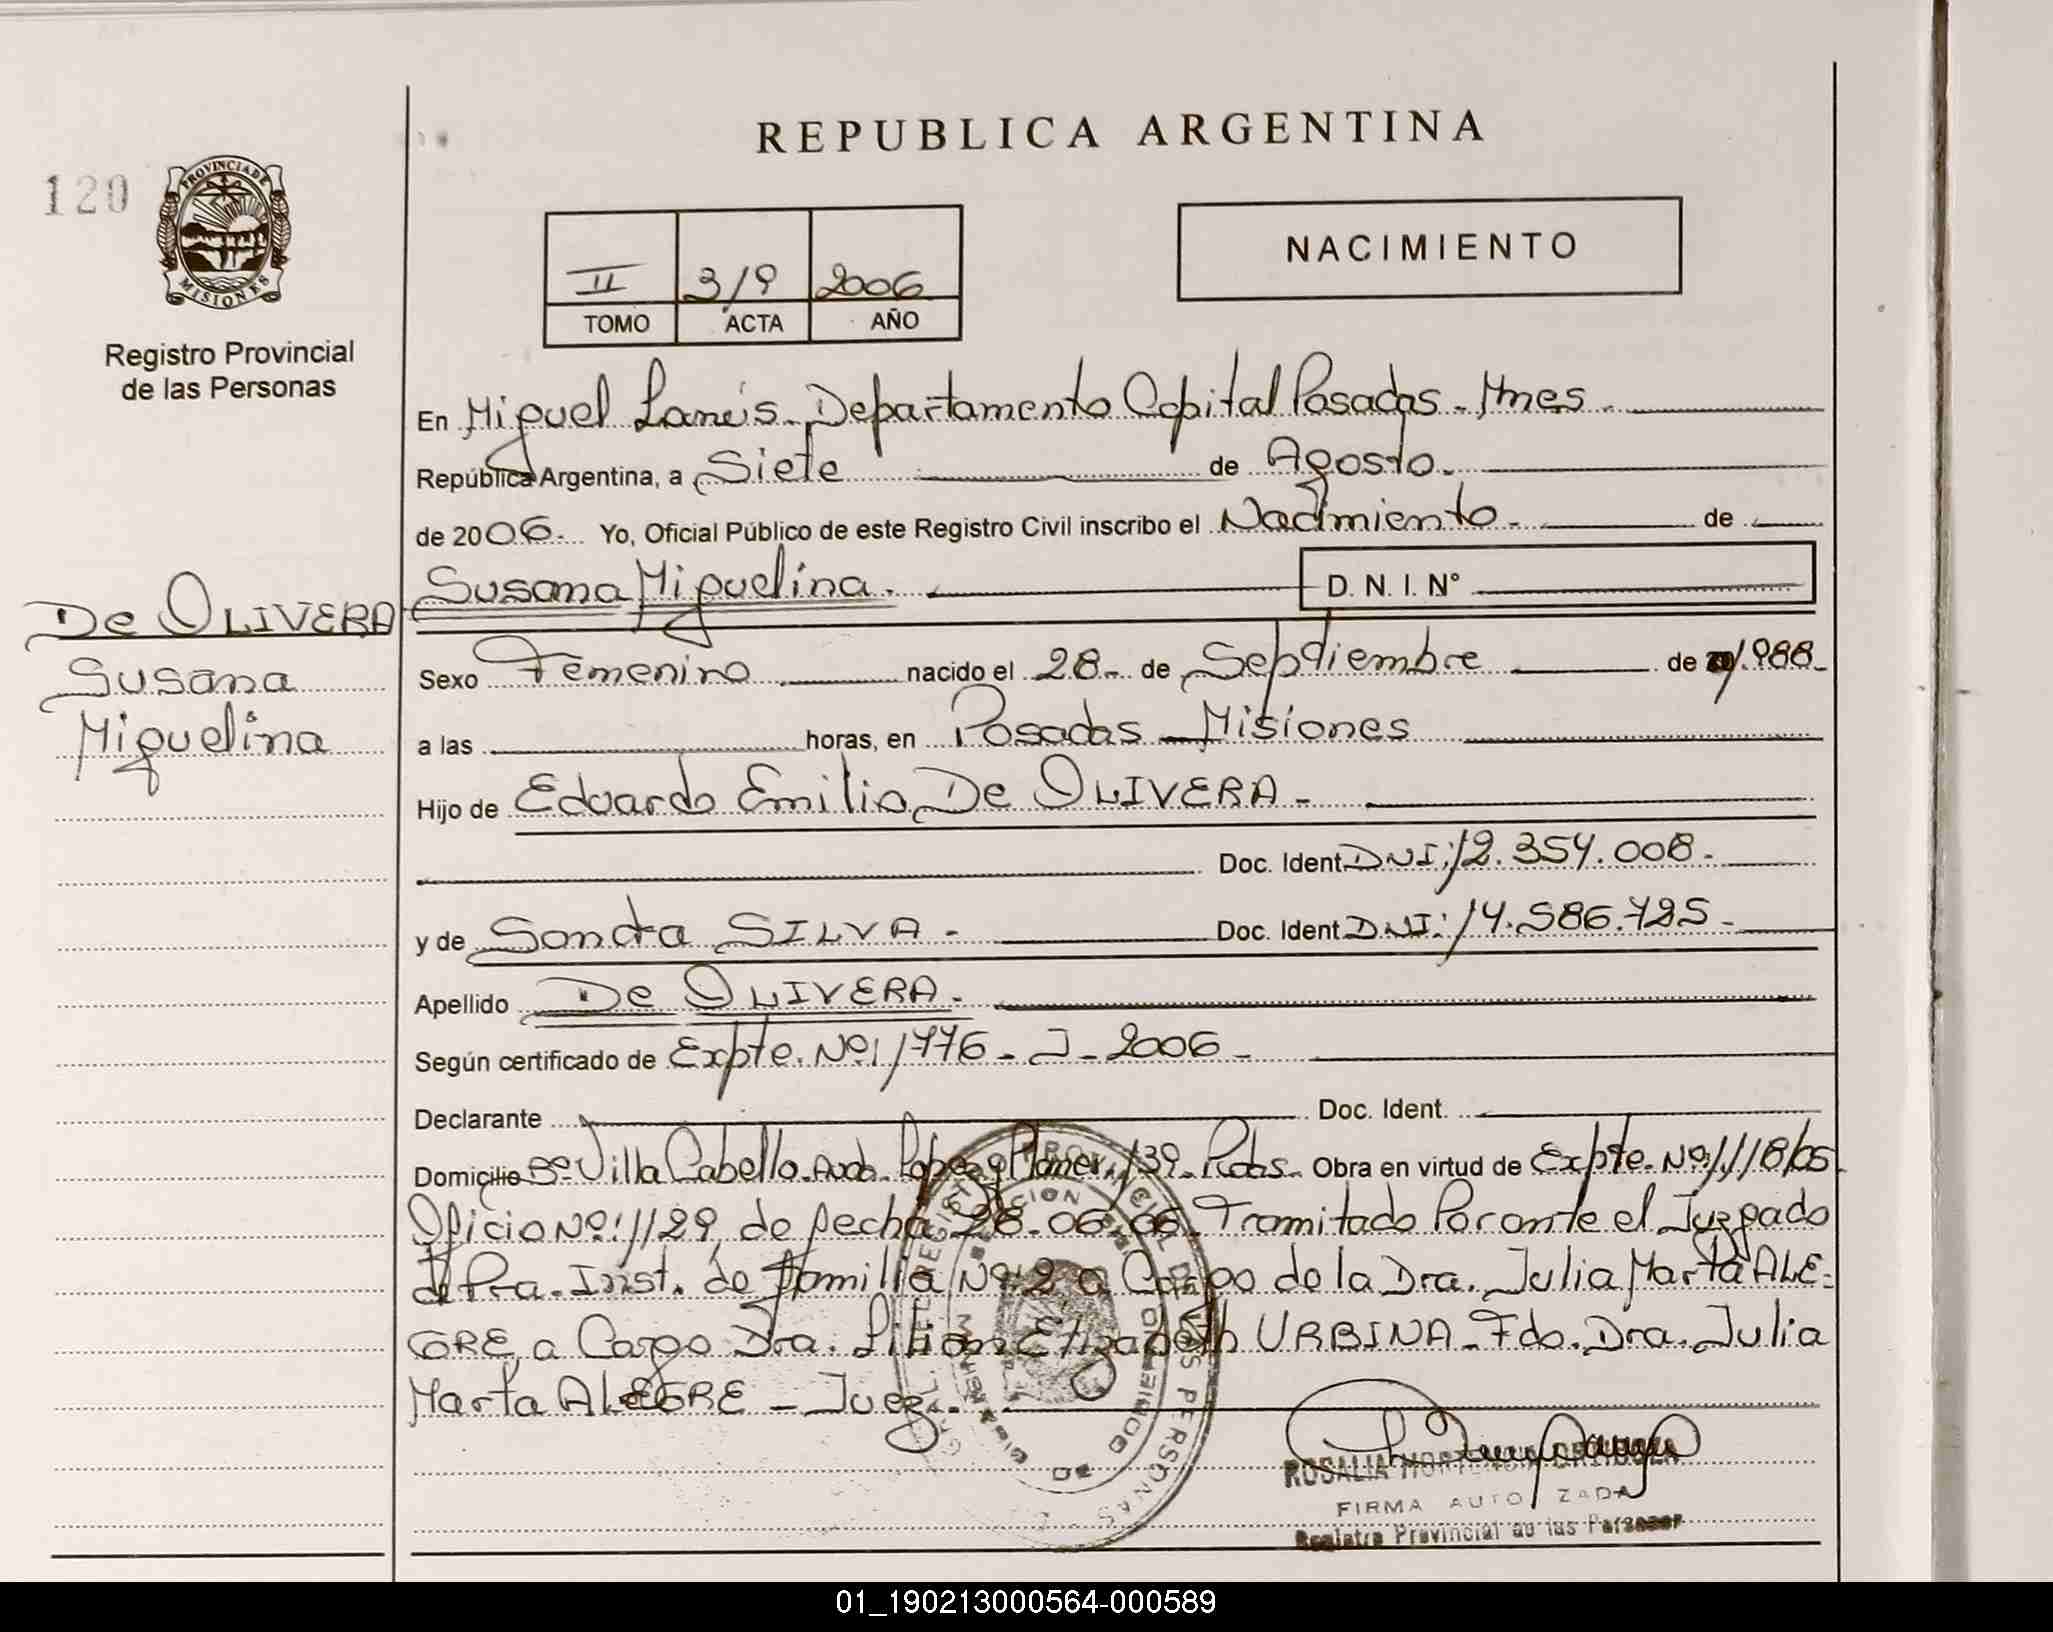 REPUBLICA ARGENTINA
120
PROVINCIA DE
MISIONES
NACIMIENTO
II 319 2006
TOMO ACTA AÑO
Registro Provincial
de las Personas
En Miguel Lanús - Departamento Capital Posadas - Mnes -
República Argentina, a Siete de Agosto.
de 2006. Yo, Oficial Público de este Registro Civil inscribo el Nacimiento - de
Susana Miguelina. D. N. I. N°
De OLIVERA
Susana
Miguelina
Sexo Femenino nacido el 28 - de Septiembre de 1.988 -
a las horas, en Posadas - Misiones
Hijo de Eduardo Emilio De OLIVERA -
Doc. Ident. DNI: 12.354.008 -
y de Sandra SILVA - Doc. Ident. DNI: 14.586.725 -
Apellido De OLIVERA -
Según certificado de Expte. Nº: 1776 - J - 2006 -
Declarante Doc. Ident.
Domicilio Bº Villa Cabello - Avda. Lopez y Planes, 139 - Pdas - Obra en virtud de Expte. Nº: 1118/05
Oficio Nº: 1129, de fecha 28.06.06, Tramitado Por ante el Juzgado
de Pra. Inst. de Familia Nº: 2 a Cargo de la Dra. Julia Marta ALE-
GRE, a Cargo Dra. Lilian Elizabeth URBINA - Fdo. Dra. Julia
Marta ALEGRE - Juez.
ROSALIA HORTENCIA
FIRMA AUTORIZADA
Registro Provincial de las Personas
01_190213000564-000589